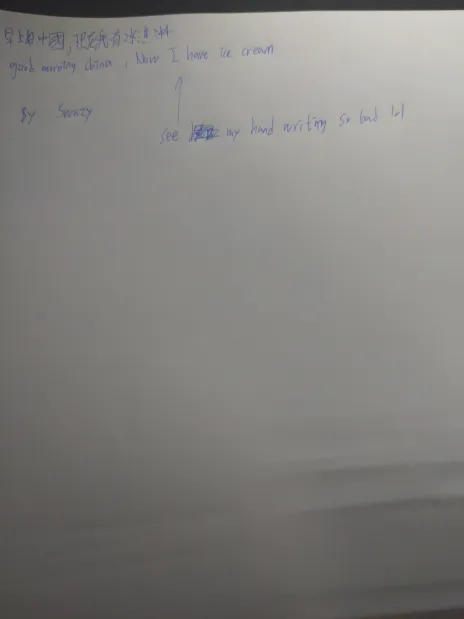 早上好中國,現在我有冰淇淋
good morning china, Now I have ice cream
By
see my hand writing so bad lol